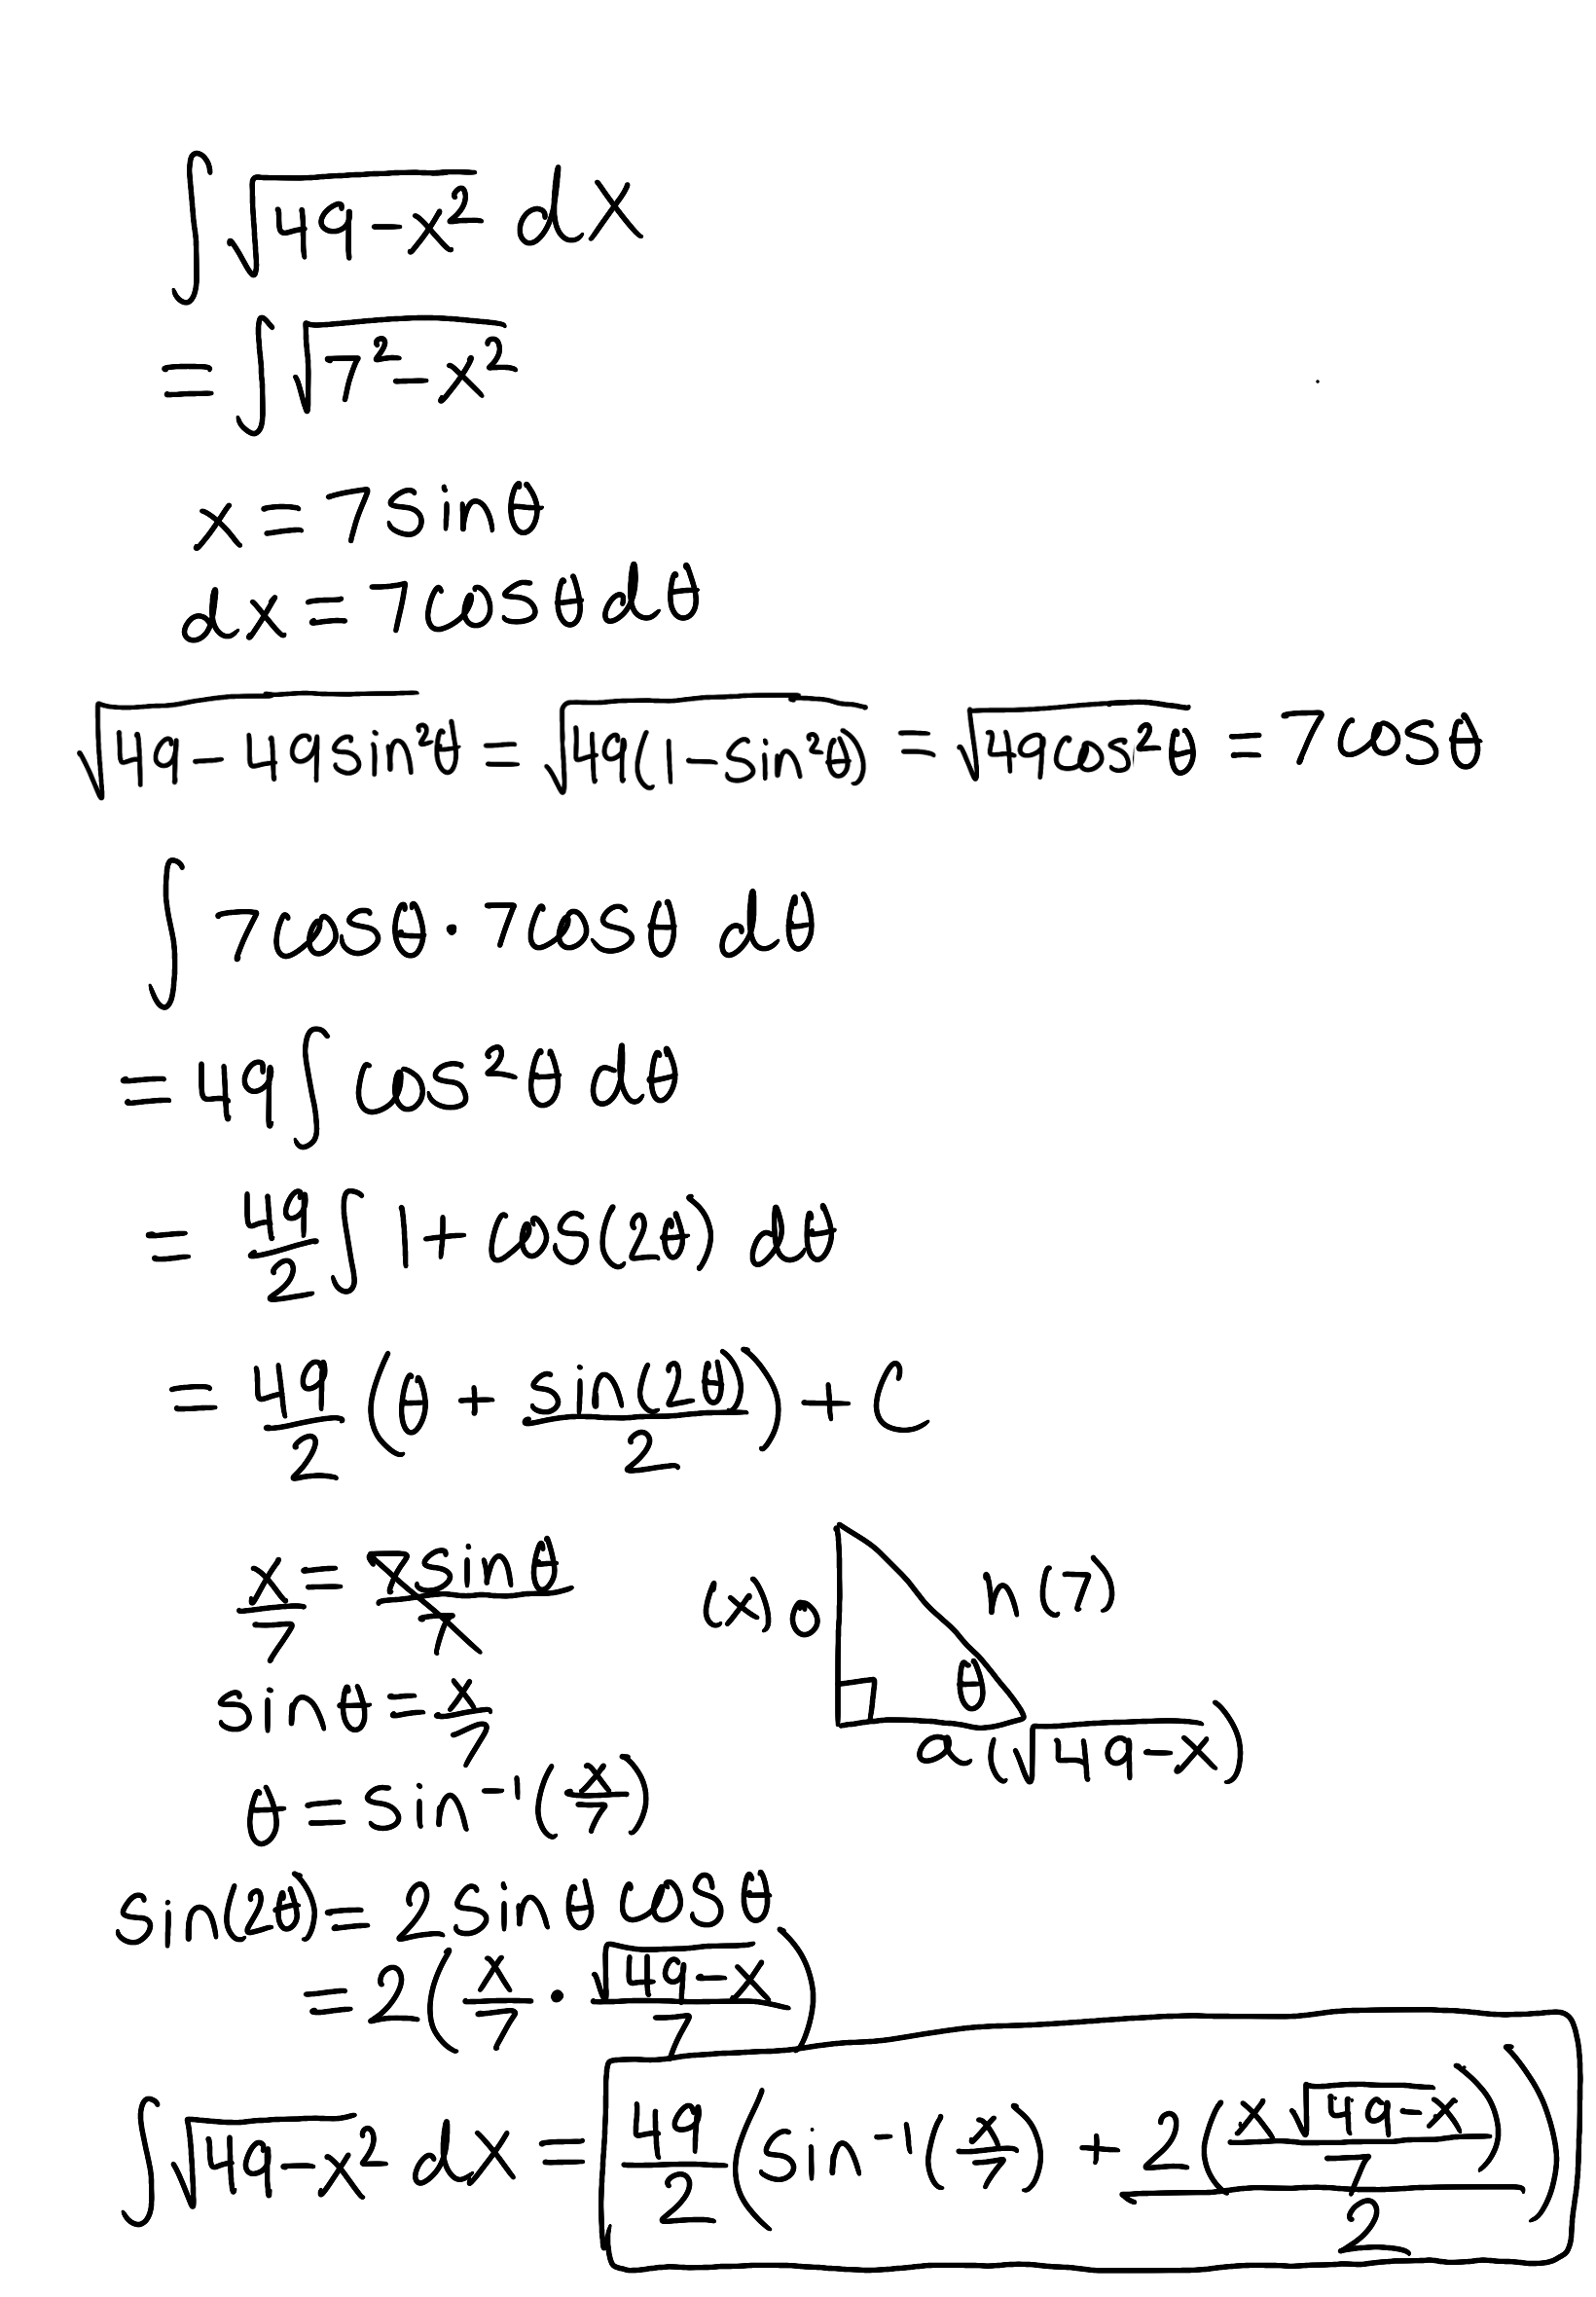 ∫√(49-x²) dx
= ∫√(7²-x²)
x = 7sinθ
dx = 7cosθdθ
√(49-49sin²θ) = √(49(1-sin²θ)) = √(49cos²θ) = 7cosθ
∫7cosθ·7cosθ dθ
= 49∫cos²θ dθ
= 49/2 ∫1+cos(2θ) dθ
= 49/2 (θ + sin(2θ)/2) + C
x/7 = 7sinθ/7
(x) o
h(7)
θ
a(√(49-x))
sinθ = x/7
θ = sin⁻¹(x/7)
sin(2θ) = 2sinθcosθ
= 2(x/7 · √(49-x)/7)
∫√(49-x²) dx = 49/2 (sin⁻¹(x/7) + 2(x√(49-x)/7)/2)